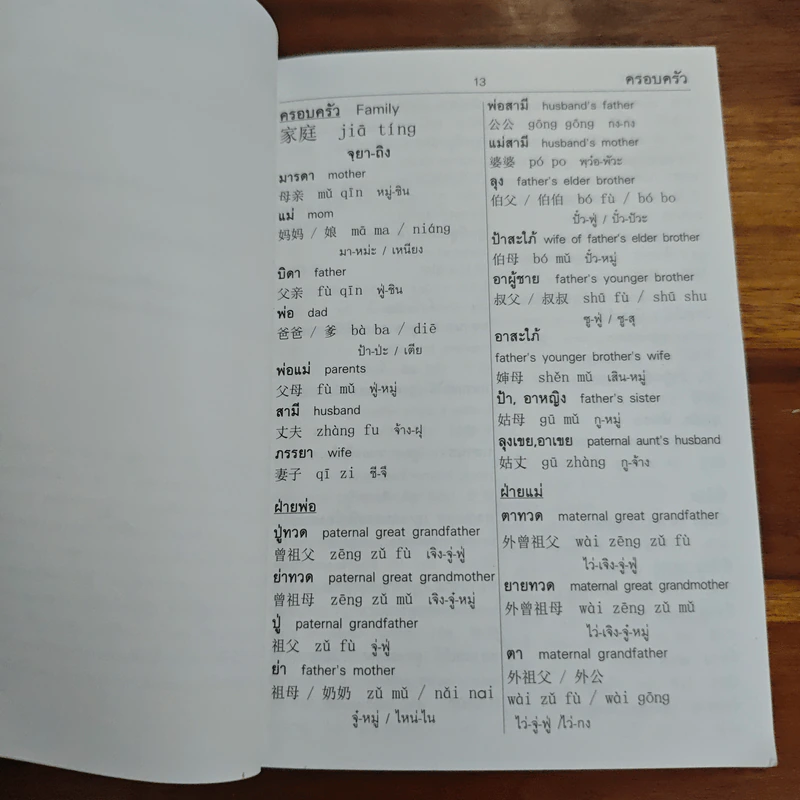 13
ครอบครัว
ครอบครัว Family
家庭 jiā tíng
จุยา-ถิง
มารดา mother
母亲 mǔ qīn หมู่-ชิน
แม่ mom
妈妈 / 娘 mā ma / niáng
มา-หม่ะ / เหนียง
บิดา father
父亲 fù qīn ฟู่-ชิน
พ่อ dad
爸爸 / 爹 bà ba / diē
ป้า-ปะ / เตีย
พ่อแม่ parents
父母 fù mǔ ฟู่-หมู่
สามี husband
丈夫 zhàng fu จ้าง-ฝุ
ภรรยา wife
妻子 qī zi ชี-จึ
ฝ่ายพ่อ
ปู่ทวด paternal great grandfather
曾祖父 zēng zǔ fù เจิง-จู่-ฟู่
ย่าทวด paternal great grandmother
曾祖母 zēng zǔ mǔ เจิง-จู๋-หมู่
ปู่ paternal grandfather
祖父 zǔ fù จู่-ฟู่
ย่า father's mother
祖母 / 奶奶 zǔ mǔ / nǎi nai
จู๋-หมู่ / ไหน่-ไน
พ่อสามี husband's father
公公 gōng gōng กง-กง
แม่สามี husband's mother
婆婆 pó po พว๋อ-พัวะ
ลุง father's elder brother
伯父 / 伯伯 bó fù / bó bo
ปั๋ว-ฟู่ / ปั๋ว-ปัวะ
ป้าสะใภ้ wife of father's elder brother
伯母 bó mǔ ปั๋ว-หมู่
อาผู้ชาย father's younger brother
叔父 / 叔叔 shū fù / shū shu
ซู-ฟู่ / ซู-สุ
อาสะใภ้
father's younger brother's wife
婶母 shěn mǔ เสิน-หมู่
ป้า, อาหญิง father's sister
姑母 gū mǔ กู-หมู่
ลุงเขย,อาเขย paternal aunt's husband
姑丈 gū zhàng กู-จ้าง
ฝ่ายแม่
ตาทวด maternal great grandfather
外曾祖父 wài zēng zǔ fù
ไว่-เจิง-จู่-ฟู่
ยายทวด maternal great grandmother
外曾祖母 wài zēng zǔ mǔ
ไว่-เจิง-จู๋-หมู่
ตา maternal grandfather
外祖父 / 外公
wài zǔ fù / wài gōng
ไว่-จู่-ฟู่ /ไว่-กง